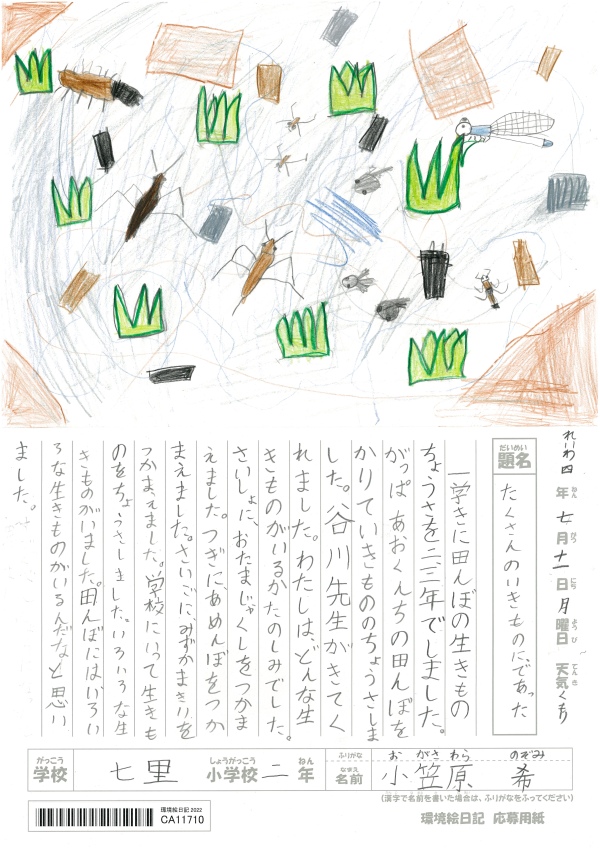 れいわ四年七月十一日月曜日 天気くもり
ねん がつ にち ようび てんき
だいめい
題名
たくさんのいきものに、であった
一学きに田んぼの生きもの
ちょうさを二、三年でしました。
がっぱ あおくんちの田んぼを
かりていきもののちょうさしま
した。谷川先生がきてく
れました。わたしは、どんな生
きものがいるかたのしみでした。
さいしょに、おたまじゃくしをつかま
えました。つぎに、あめんぼをつか
まえました。さいごに、みずかまきりを
つかまえました。学校にいって生きも
のをちょうさしました。いろいろな生
きものがいました。田んぼにはいろい
ろな生きものがいるんだなと思い
ました。
がっこう しょうがっこう ねん ふりがな おがさわら のぞみ
学校 七里 小学校 二年 なまえ 名前 小笠原 希
(漢字で名前を書いた場合は、ふりがなをふってください)
環境絵日記 2022
CA11710
環境絵日記 応募用紙